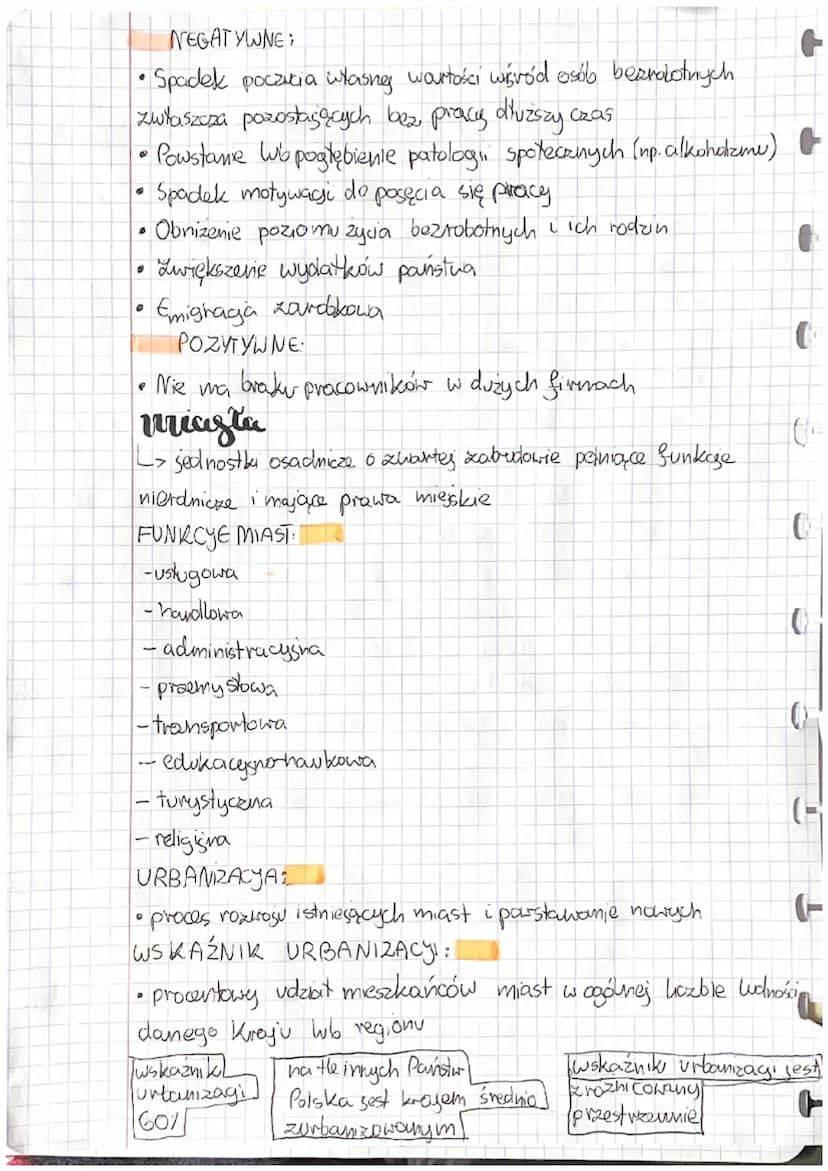 NEGATYWNE:
• Spadek poczucia własnej wartości wśród osób bezrobotnych
zwłaszcza pozostających bez pracy dłuższy czas
• Powstanie lub pogłębienie patologii społecznych (np. alkoholizmu)
• Spadek motywacji do pojęcia się pracy
• Obniżenie poziomu życia bezrobotnych i ich rodzin
• Zwiększenie wydatków państwa
• Emigracja zarobkowa
POZYTYWNE:
• Nie ma braku pracowników w dużych firmach
miasta
↳ jednostki osadnicze o zwartej zabudowie pełniące funkcje
nierolnicze i mające prawa miejskie
FUNKCJE MIAST:
- usługowa
- handlowa
- administracyjna
- przemysłowa
- transportowa
- edukacyjno-naukowa
- turystyczna
- religijna
URBANIZACJA:
• proces rozwoju istniejących miast i powstawanie nowych
WSKAŹNIK URBANIZACJI:
• procentowy udział mieszkańców miast w ogólnej liczbie ludności
danego kraju lub regionu
wskaźnik urbanizacji 60%
na tle innych Państw Polska jest krajem średnio zurbanizowanym
wskaźnik urbanizacji jest zróżnicowany przestrzennie